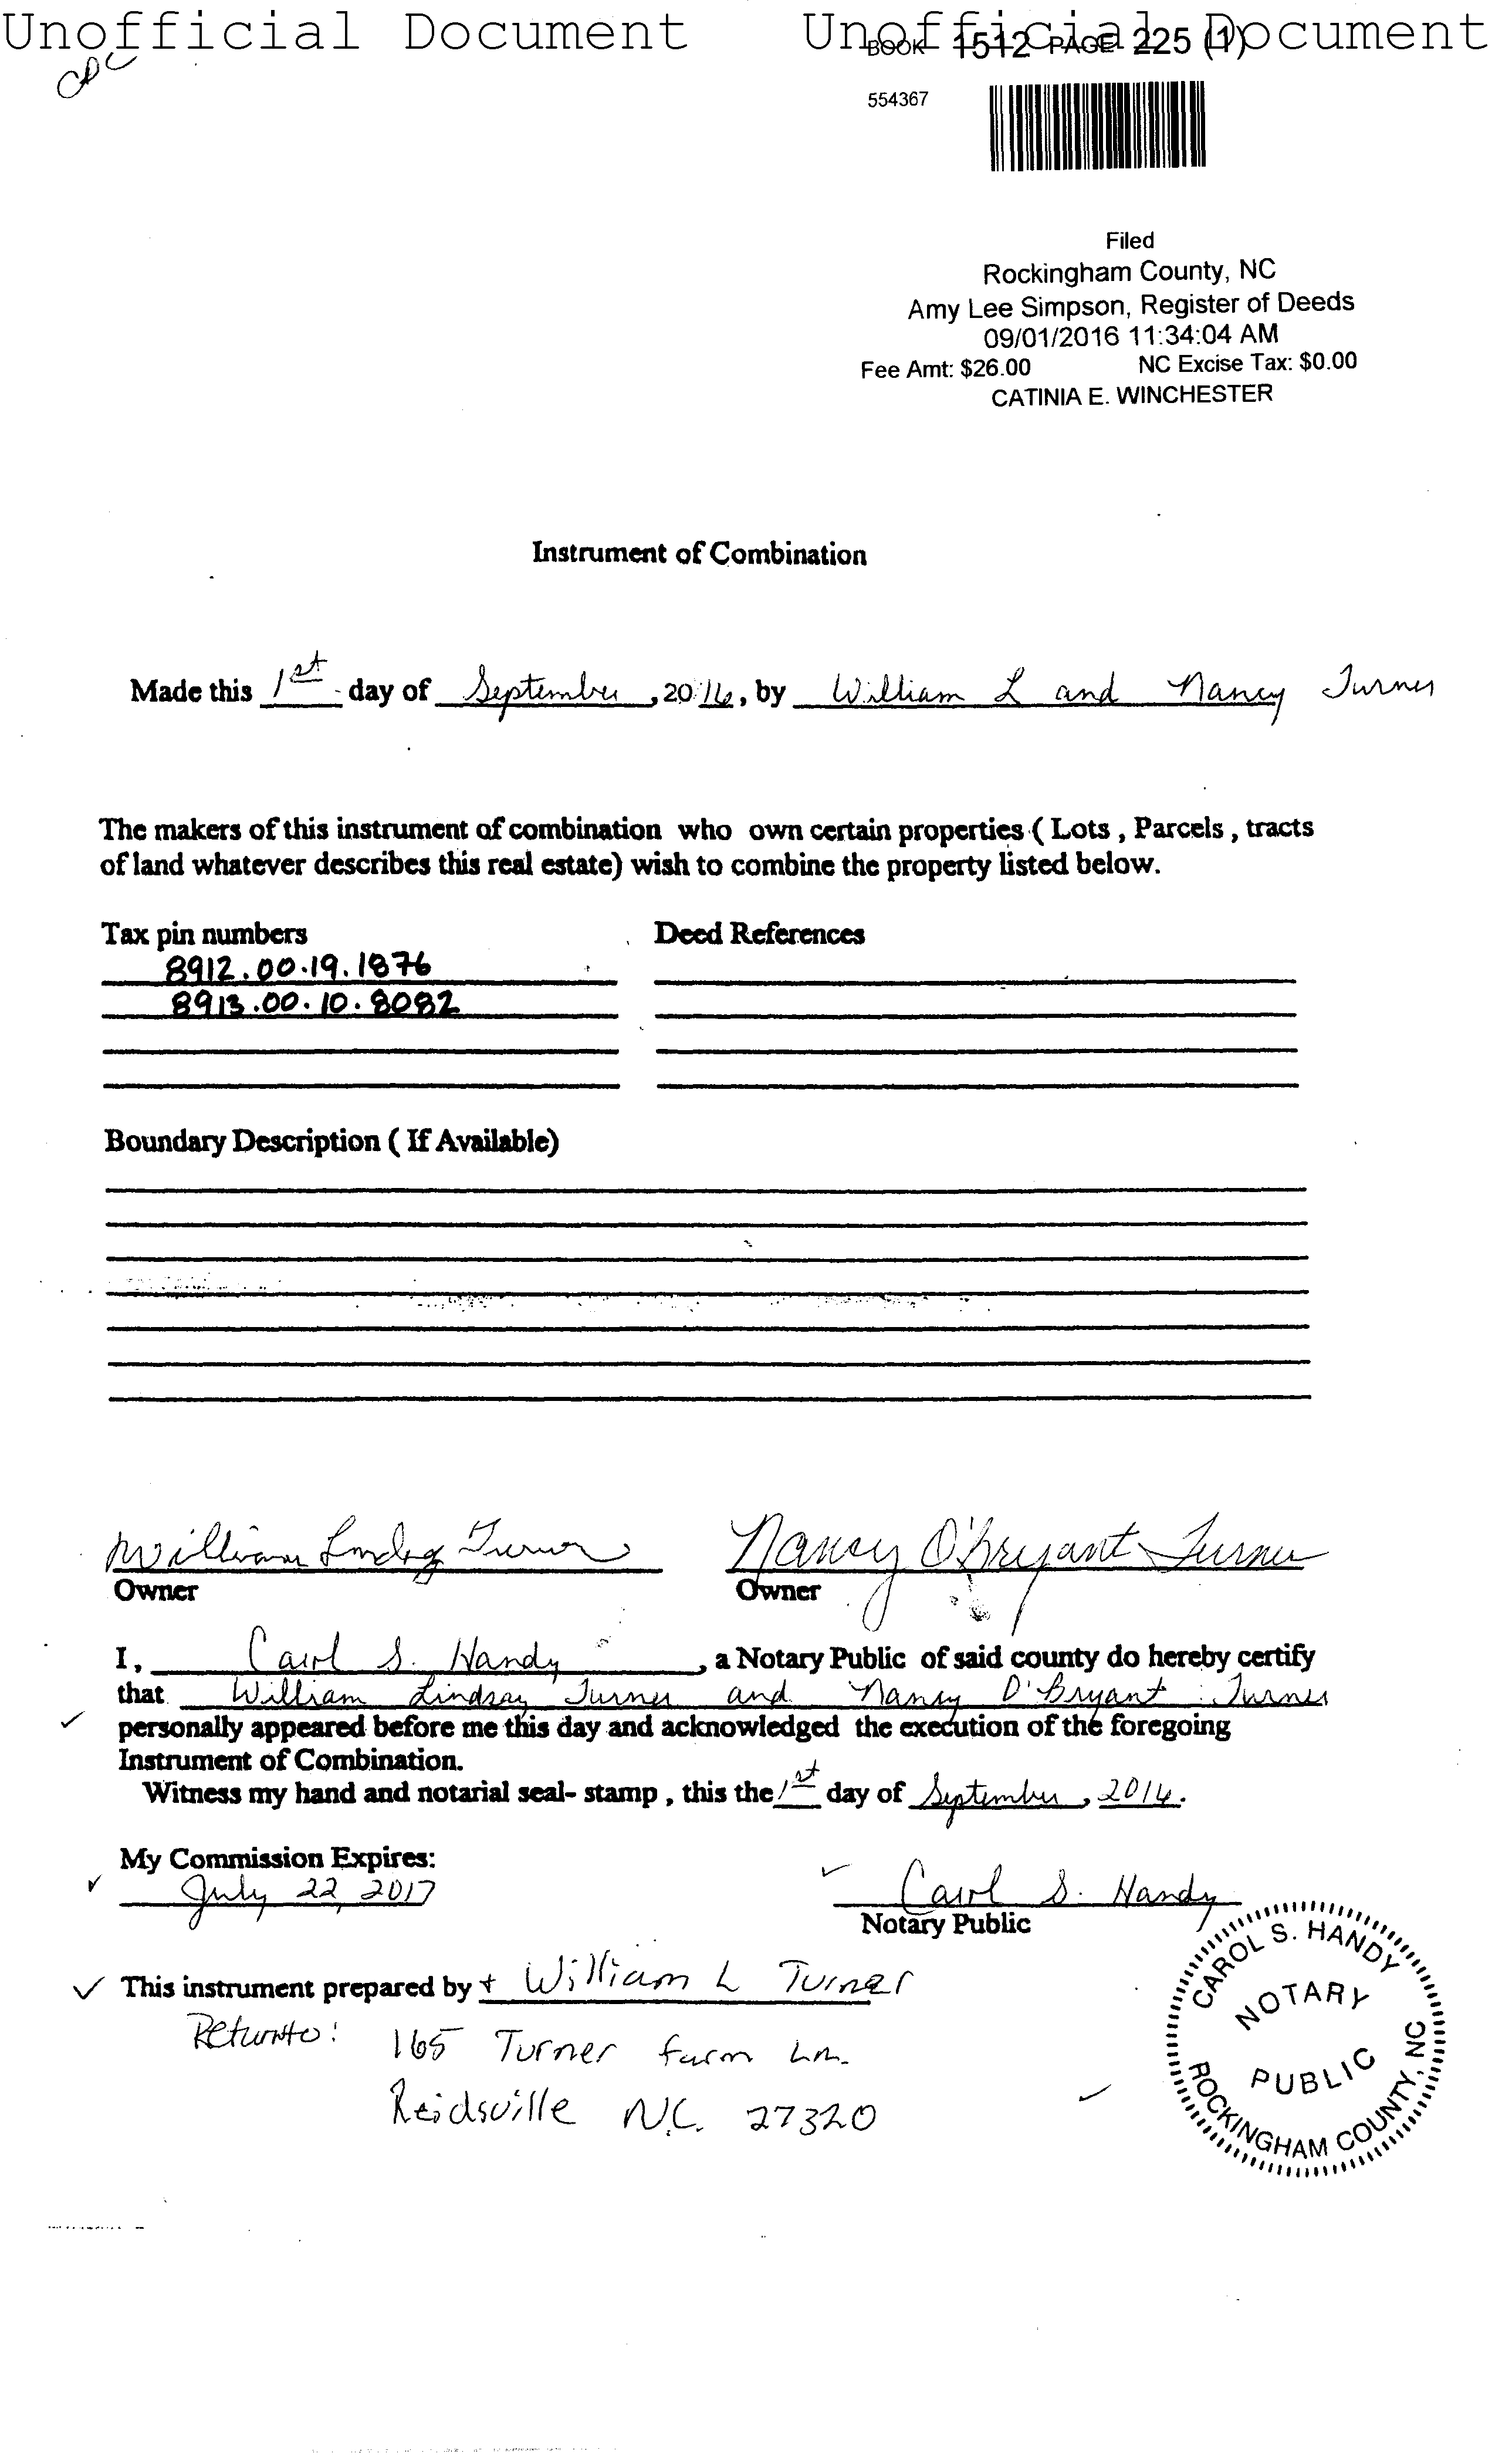 Unofficial Document Unofficial Document
BOOK 1512 PAGE 225 (1)
CDC
554367
Filed
Rockingham County, NC
Amy Lee Simpson, Register of Deeds
09/01/2016 11:34:04 AM
Fee Amt: $26.00 NC Excise Tax: $0.00
CATINIA E. WINCHESTER
Instrument of Combination
Made this 1st day of September, 2016, by William L and Nancy Turner
The makers of this instrument of combination who own certain properties ( Lots , Parcels , tracts
of land whatever describes this real estate) wish to combine the property listed below.
Tax pin numbers Deed References
8912.00.19.1876
8913.00.10.8082
Boundary Description ( If Available)
William Lindsay Turner Nancy O'Bryant Turner
Owner Owner
I, Carol S. Handy, a Notary Public of said county do hereby certify
that William Lindsay Turner and Nancy O'Bryant Turner
personally appeared before me this day and acknowledged the execution of the foregoing
Instrument of Combination.
Witness my hand and notarial seal- stamp , this the 1st day of September, 2016.
My Commission Expires:
July 22, 2017 Carol S. Handy
Notary Public
This instrument prepared by + William L Turner
Return to: 165 Turner farm Ln.
Reidsville N.C. 27320
CAROL S. HANDY
NOTARY
PUBLIC
ROCKINGHAM COUNTY, NC